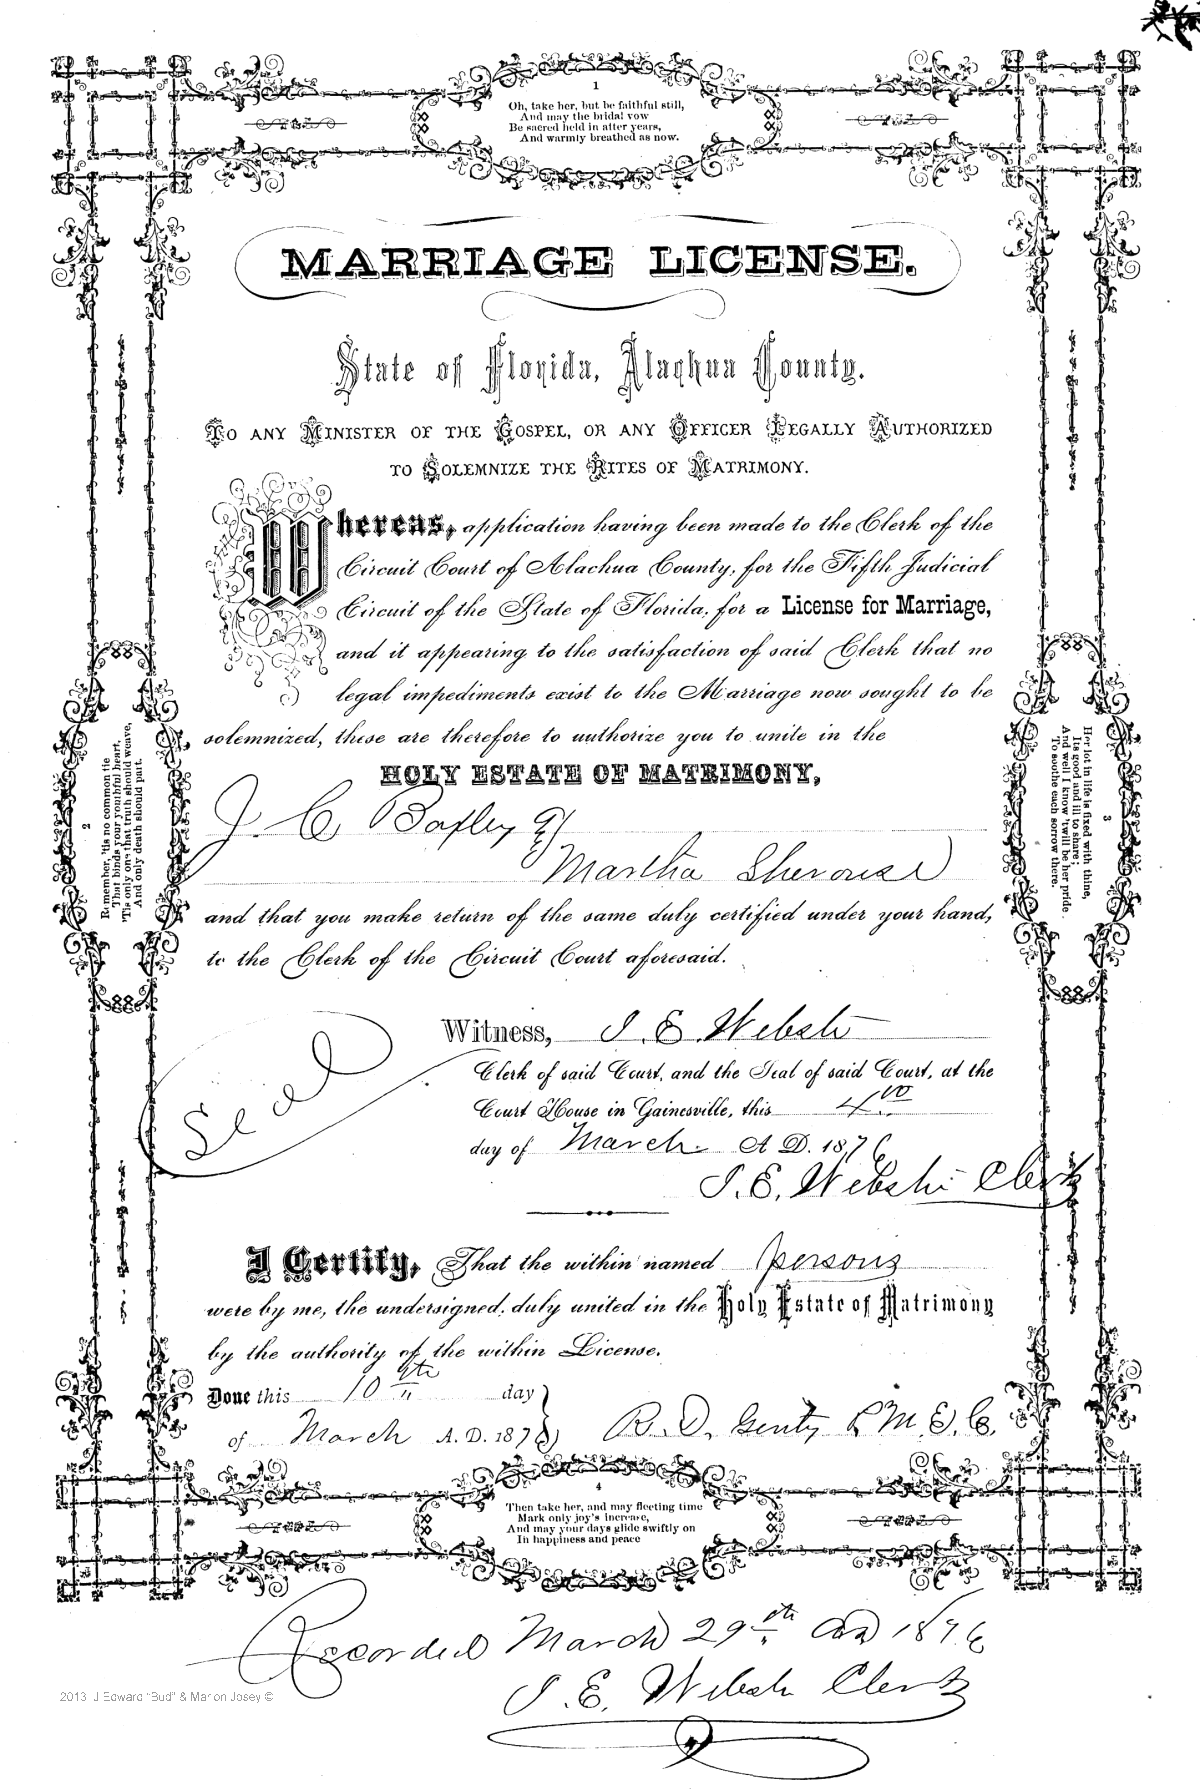 1
Oh, take her, but be faithful still,
And may the bridal vow
Be sacred held in after years,
And warmly breathed as now.
MARRIAGE LICENSE.
State of Florida, Alachua County.
TO ANY MINISTER OF THE GOSPEL, OR ANY OFFICER LEGALLY AUTHORIZED
TO SOLEMNIZE THE RITES OF MATRIMONY.
Whereas, application having been made to the Clerk of the
Circuit Court of Alachua County, for the Fifth Judicial
Circuit of the State of Florida, for a License for Marriage,
and it appearing to the satisfaction of said Clerk that no
legal impediments exist to the Marriage now sought to be
solemnized, these are therefore to authorize you to unite in the
HOLY ESTATE OF MATRIMONY,
J. C. Boxley &
Martha Sherouse
and that you make return of the same duly certified under your hand,
to the Clerk of the Circuit Court aforesaid.
2
Remember, 'tis no common tie
That binds your youthful heart,
'Tis only one that truth should weave,
And only death should part.
3
Her lot in life is fixed with thine,
Its good and ill to share;
And well I know 'twill be her pride
To soothe each sorrow there.
Seal
Witness, J. E. Webster
Clerk of said Court, and the Seal of said Court, at the
Court House in Gainesville, this 4th
day of March A.D. 1876
J. E. Webster Clerk
I Certify, That the within named persons
were by me, the undersigned, duly united in the Holy Estate of Matrimony
by the authority of the within License.
Done this 10th day
of March A.D. 1876
R. D. Gentry L M. E. C.
4
Then take her, and may fleeting time
Mark only joy's increase,
And may your days glide swiftly on
In happiness and peace
Recorded March 29th AD 1876
J. E. Webster Clerk
2013 J Edward "Bud" & Marion Josey ©